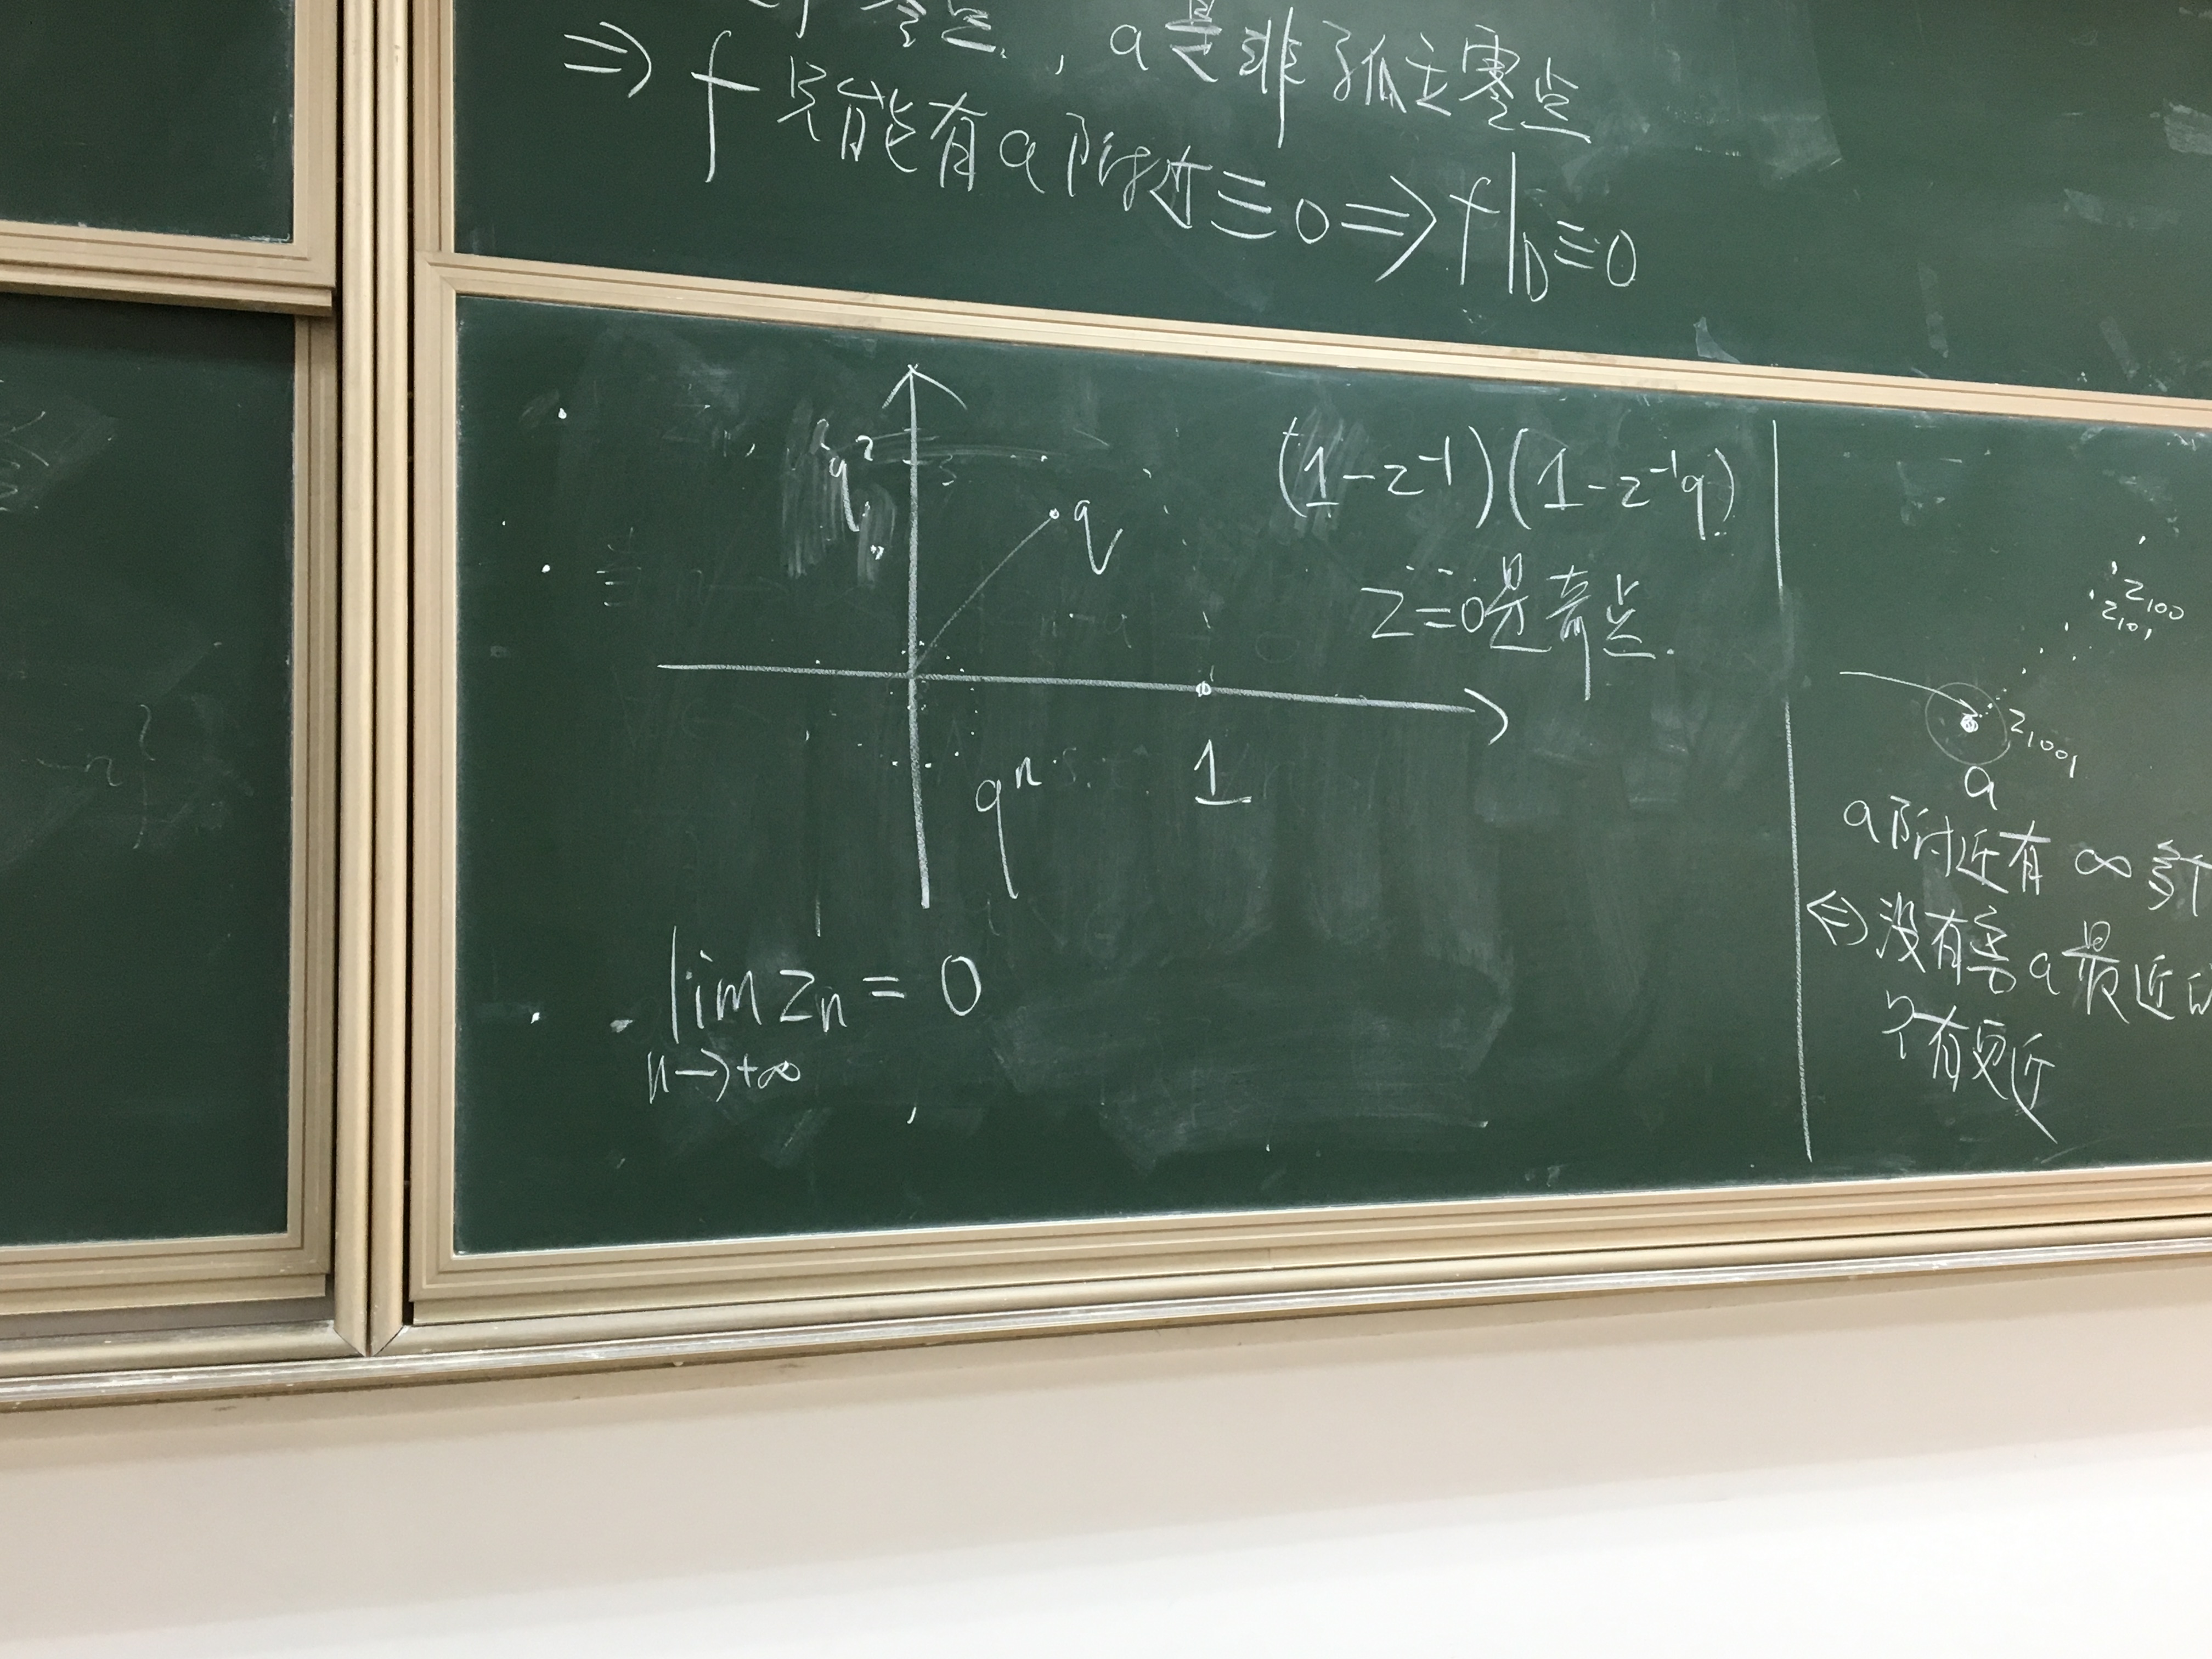 零点, a是非孤立零点
⇒ f 只能有a附近≡0 ⇒ f|_D≡0
q²
q
(1-z⁻¹)(1-z⁻¹q)
z=0是奇点.
1
qⁿ
lim zₙ = 0
n→+∞
z₁₀₀
z₁₀₁
z₁₀₀₁
a
a附近有 ∞多个
⇔ 没有离a最近的
只有更近